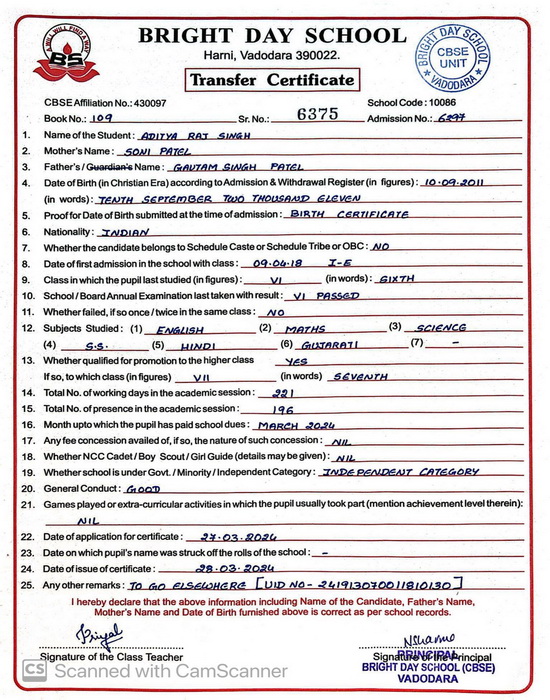 A WILL WILL FIND A WAY
BS
BRIGHT DAY SCHOOL
Harni, Vadodara 390022.
Transfer Certificate
BRIGHT DAY SCHOOL
CBSE
UNIT
VADODARA
CBSE Affiliation No.: 430097 School Code : 10086
Book No.: 109 Sr. No.: 6375 Admission No.: 6297
1. Name of the Student : ADITYA RAJ SINGH
2. Mother's Name : SONI PATEL
3. Father's / Guardian's Name : GAUTAM SINGH PATEL
4. Date of Birth (in Christian Era) according to Admission & Withdrawal Register (in figures) : 10-09-2011
(in words) : TENTH SEPTEMBER TWO THOUSAND ELEVEN
5. Proof for Date of Birth submitted at the time of admission : BIRTH CERTIFICATE
6. Nationality : INDIAN
7. Whether the candidate belongs to Schedule Caste or Schedule Tribe or OBC : NO
8. Date of first admission in the school with class : 09-04-18 I-E
9. Class in which the pupil last studied (in figures) : VI (in words) : SIXTH
10. School / Board Annual Examination last taken with result : VI PASSED
11. Whether failed, if so once / twice in the same class : NO
12. Subjects Studied : (1) ENGLISH (2) MATHS (3) SCIENCE
(4) S.S. (5) HINDI (6) GUJARATI (7) -
13. Whether qualified for promotion to the higher class YES
If so, to which class (in figures) VII (in words) SEVENTH
14. Total No. of working days in the academic session : 221
15. Total No. of presence in the academic session : 196
16. Month upto which the pupil has paid school dues : MARCH 2024
17. Any fee concession availed of, if so, the nature of such concession : NIL
18. Whether NCC Cadet / Boy Scout / Girl Guide (details may be given) : NIL
19. Whether school is under Govt. / Minority / Independent Category : INDEPENDENT CATEGORY
20. General Conduct : GOOD
21. Games played or extra-curricular activities in which the pupil usually took part (mention achievement level therein):
NIL
22. Date of application for certificate : 27-03-2024
23. Date on which pupil's name was struck off the rolls of the school : -
24. Date of issue of certificate : 28-03-2024
25. Any other remarks : TO GO ELSEWHERE [UID NO- 241913070011810130]
I hereby declare that the above information including Name of the Candidate, Father's Name,
Mother's Name and Date of Birth furnished above is correct as per school records.
Signature of the Class Teacher Signature of the Principal
PRINCIPAL
BRIGHT DAY SCHOOL (CBSE)
VADODARA
CS Scanned with CamScanner